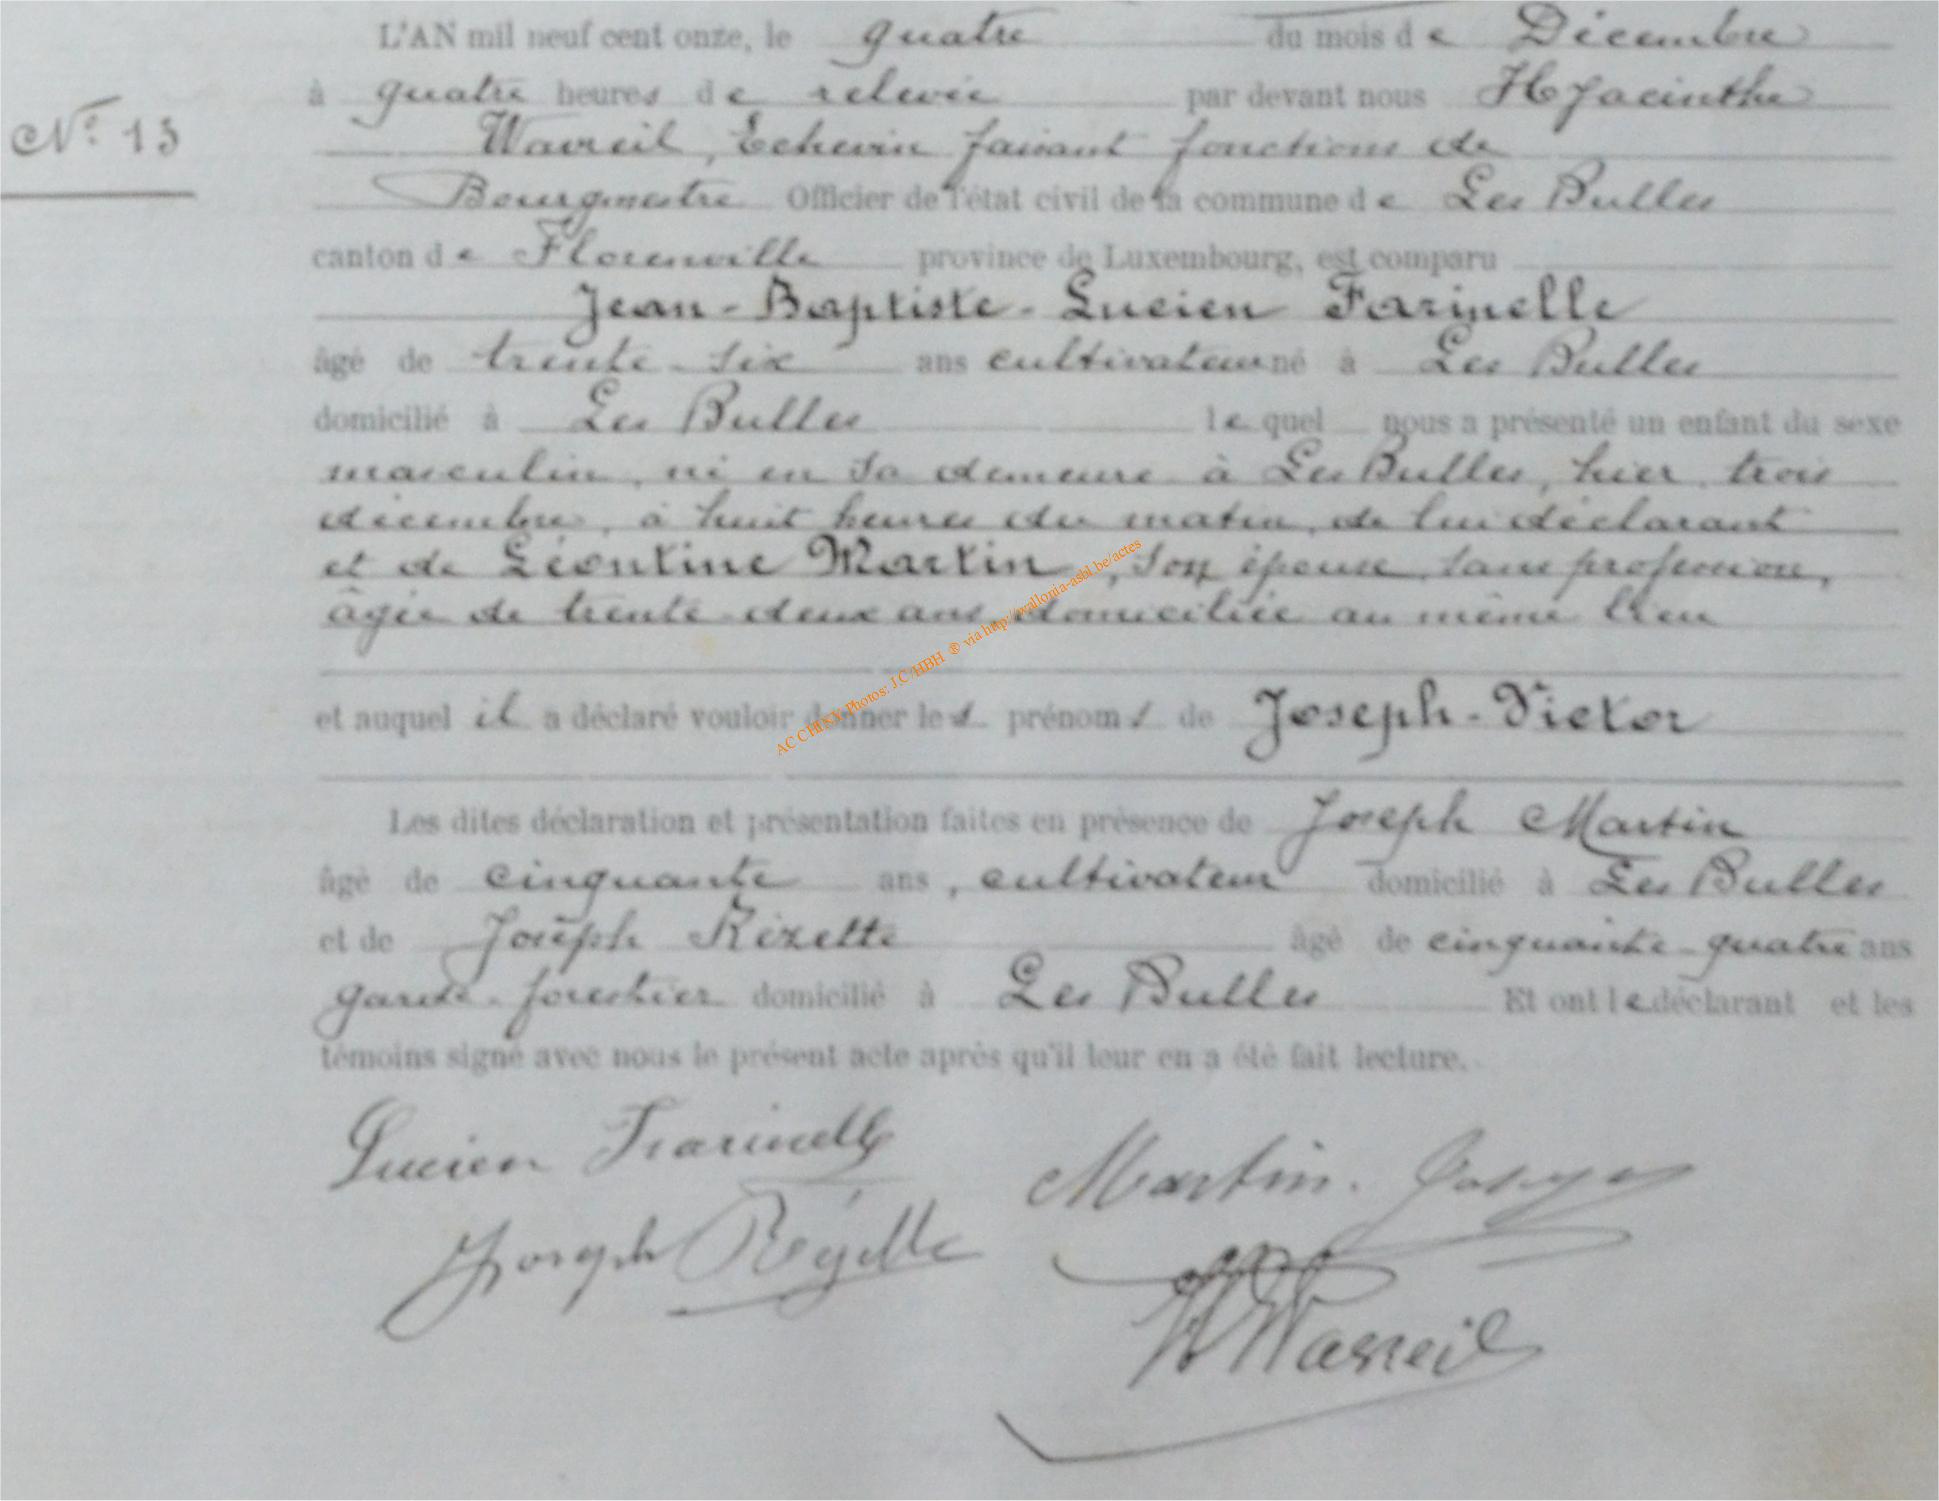 L'AN mil neuf cent onze, le quatre du mois de Décembre
à quatre heures de relevée par devant nous Hyacinthe
N° 13
Wavreil, Echevin faisant fonctions de
Bourgmestre Officier de l'état civil de la commune de Les Bulles
canton de Florenville province de Luxembourg, est comparu
Jean-Baptiste-Lucien Farinelle
âgé de trente-six ans cultivateur né à Les Bulles
domicilié à Les Bulles lequel nous a présenté un enfant du sexe
masculin, né en sa demeure à Les Bulles, hier trois
décembre, à huit heures du matin, de lui déclarant
et de Léontine Martin, son épouse, sans profession,
âgée de trente-deux ans domiciliée au même lieu
et auquel il a déclaré vouloir donner les prénoms de Joseph-Victor
Les dites déclaration et présentation faites en présence de Joseph Martin
âgé de cinquante ans, cultivateur domicilié à Les Bulles
et de Joseph Rézette âgé de cinquante-quatre ans
garde-forestier domicilié à Les Bulles Et ont le déclarant et les
témoins signé avec nous le présent acte après qu'il leur en a été fait lecture.
Lucien Farinelle
Martin. Joseph
Joseph Rézette
H Wavreil
AC CHINY Photos: J.C/HBH ® via http://wallonia-asbl.be/actes